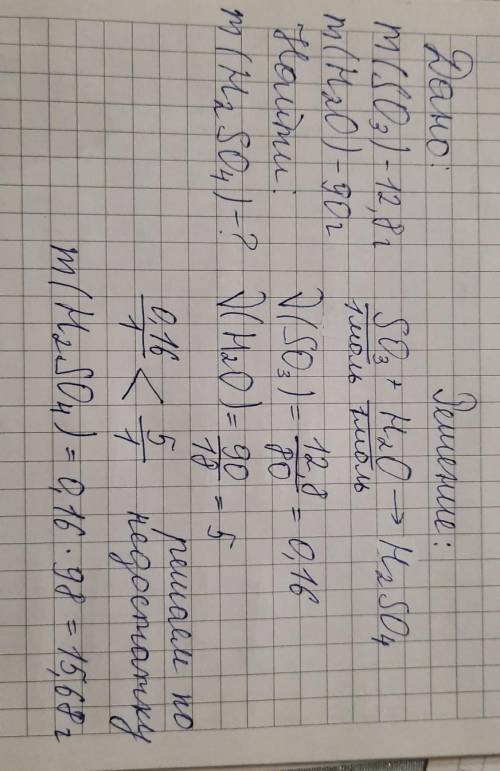 Дано:
m(SO₃) - 12,8г
m(H₂O) - 90г
Найти:
m(H₂SO₄) - ?
Решение:
SO₃ + H₂O → H₂SO₄
1моль 1моль
ν(SO₃) = 12,8/80 = 0,16
ν(H₂O) = 90/18 = 5
0,16/1 < 5/1 решаем по
недостатку
m(H₂SO₄) = 0,16 · 98 = 15,68 г